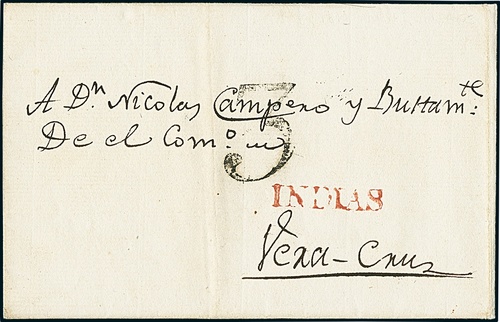 A Dn. Nicolas Campero y Bustamte:
De el Como. en
3
INDIAS
Vera-Cruz